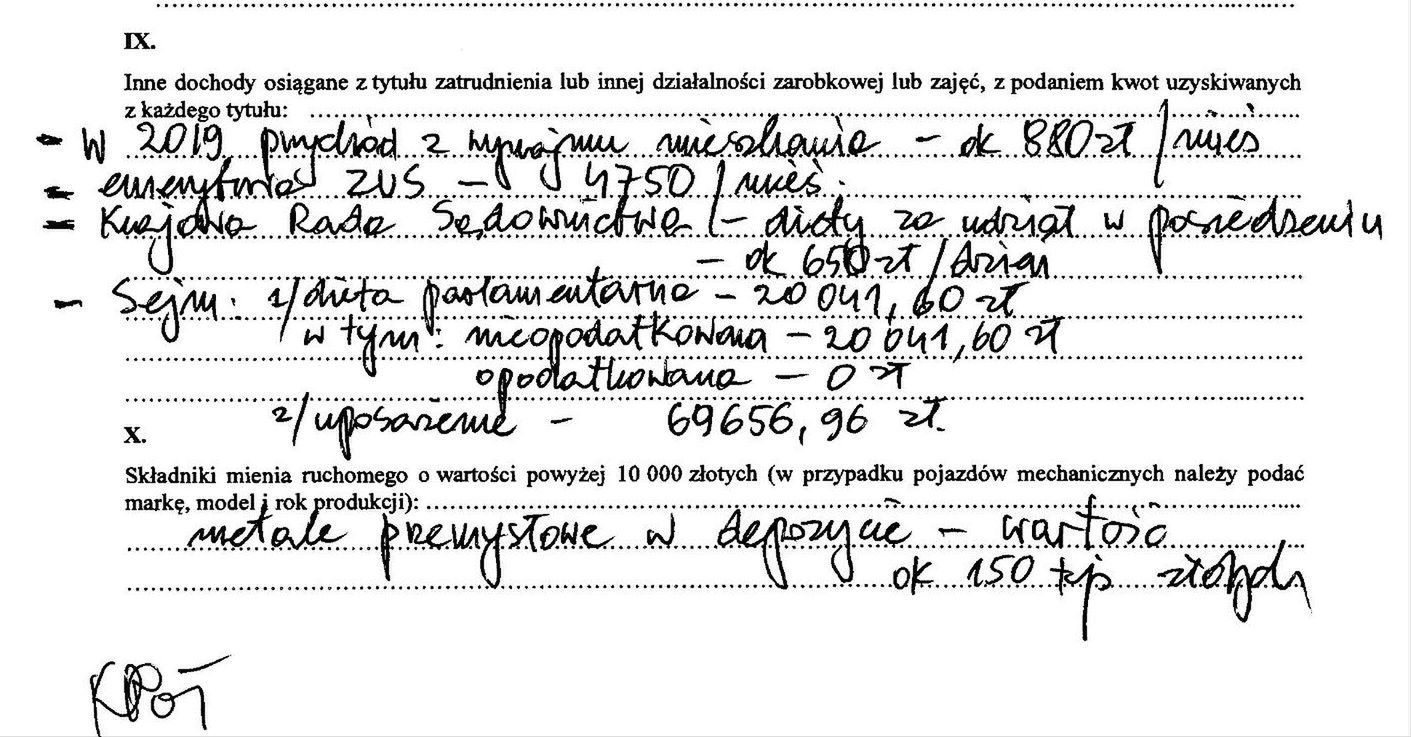 IX.
Inne dochody osiągane z tytułu zatrudnienia lub innej działalności zarobkowej lub zajęć, z podaniem kwot uzyskiwanych
z każdego tytułu:
- W 2019 przychód z wynajmu mieszkania - ok 880 zł / mieś
- emerytura ZUS - 4750 / mieś.
- Krajowa Rada Sądownictwa - diety za udział w posiedzeniu
- ok 650 zł / dzień
- Sejm: 1/ dieta parlamentarna - 20 041,60 zł
w tym: nieopodatkowana - 20 041,60 zł
opodatkowana - 0 zł
2/ uposażenie - 69656,96 zł.
X.
Składniki mienia ruchomego o wartości powyżej 10 000 złotych (w przypadku pojazdów mechanicznych należy podać
markę, model i rok produkcji):
metale przemysłowe w depozycie - wartość
ok 150 tys złotych